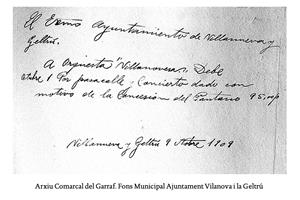 El Exmo Ayuntamiento de Villanueva y
Geltrú.
A Orquesta "Villanovesa" Debe
Octubre 1 Por pasacalle y Concierto dado con
motivo de la Concesion del Pantano 95.00 p
Villanueva y Geltrú 9 Octbre 1909
Arxiu Comarcal del Garraf. Fons Municipal Ajuntament Vilanova i la Geltrú